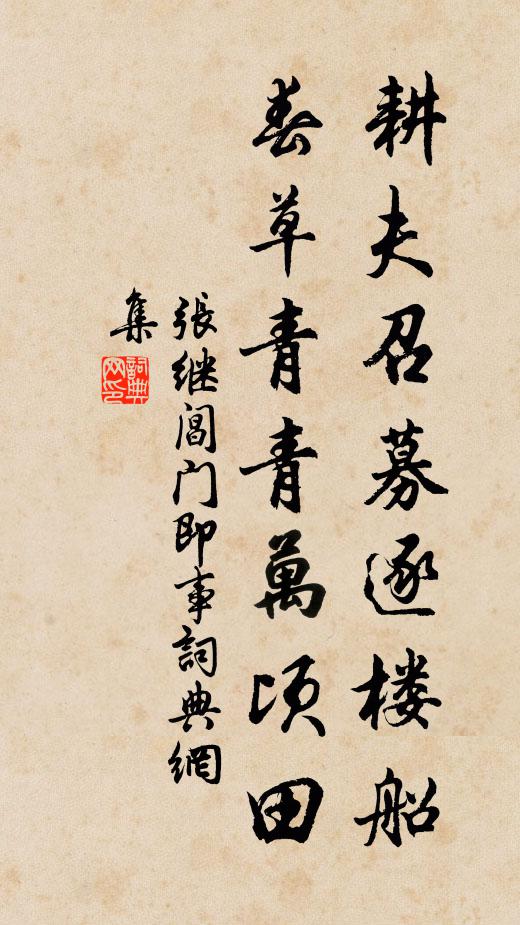 耕夫召募逐楼船
春草青青萬顷田
張继閶门即事詞典網
集
詞典网印